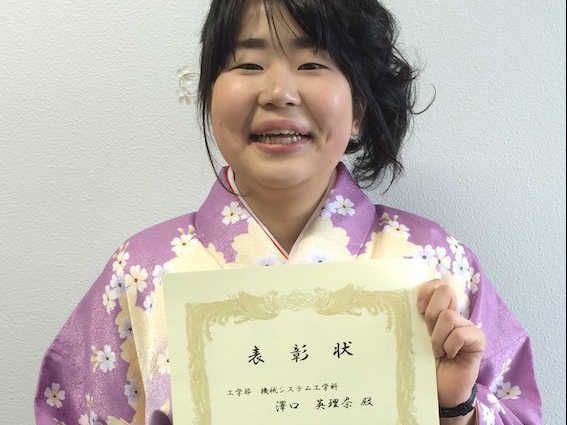 表彰状
工学部 機械システム工学科
澤口 英理奈 殿